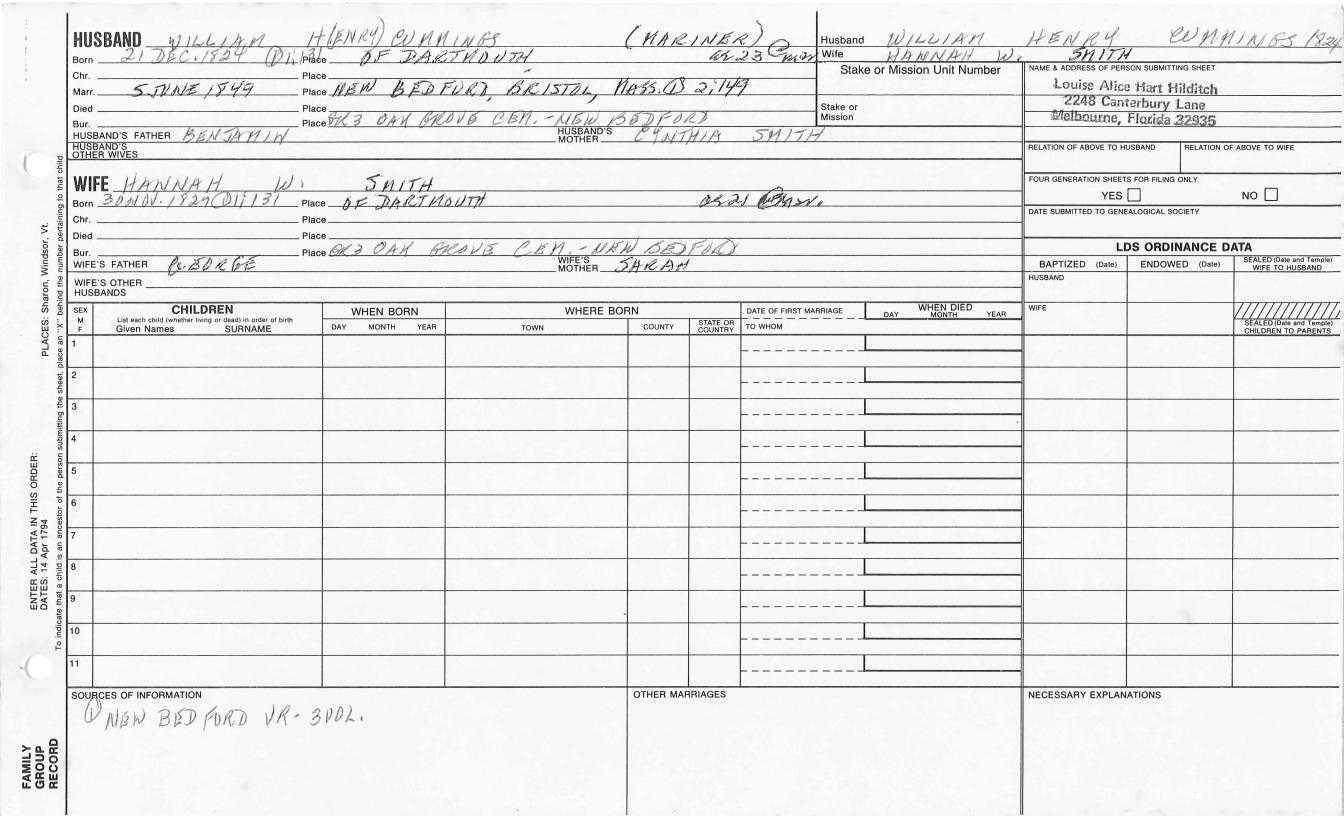 HUSBAND WILLIAM H(ENRY) CUMMINGS (MARINER)
Born 21 DEC. 1824 ① 1:131 Place OF DARTMOUTH ae 23 @ mar
Chr. Place
Marr. 5 JUNE 1849 Place NEW BEDFORD, BRISTOL, MASS. ① 2:149
Died Place
Bur. Place GR3 OAK GROVE CEM.-NEW BEDFORD
HUSBAND'S FATHER BENJAMIN HUSBAND'S MOTHER CYNTHIA SMITH
HUSBAND'S OTHER WIVES
WIFE HANNAH W. SMITH
Born 30 NOV. 1827 ① 1:131 Place OF DARTMOUTH ae 21 @ mar.
Chr. Place
Died Place
Bur. Place GR3 OAK GROVE CEM.-NEW BEDFORD
WIFE'S FATHER GEORGE WIFE'S MOTHER SARAH
WIFE'S OTHER HUSBANDS
Husband WILLIAM HENRY CUMMINGS 1824
Wife HANNAH W. SMITH
Stake or Mission Unit Number
Stake or
Mission
NAME & ADDRESS OF PERSON SUBMITTING SHEET
Louise Alice Hart Hilditch
2248 Canterbury Lane
Melbourne, Florida 32935
RELATION OF ABOVE TO HUSBAND RELATION OF ABOVE TO WIFE
FOUR GENERATION SHEETS FOR FILING ONLY
YES NO
DATE SUBMITTED TO GENEALOGICAL SOCIETY
LDS ORDINANCE DATA
BAPTIZED (Date) ENDOWED (Date) SEALED (Date and Temple) WIFE TO HUSBAND
HUSBAND
WIFE
SEALED (Date and Temple) CHILDREN TO PARENTS
SEX M F
CHILDREN
List each child (whether living or dead) in order of birth
Given Names SURNAME
WHEN BORN
DAY MONTH YEAR
WHERE BORN
TOWN COUNTY STATE OR COUNTRY
DATE OF FIRST MARRIAGE
TO WHOM
WHEN DIED
DAY MONTH YEAR
1
2
3
4
5
6
7
8
9
10
11
SOURCES OF INFORMATION
① NEW BEDFORD VR- 3VOL.
OTHER MARRIAGES
NECESSARY EXPLANATIONS
PLACES: Sharon, Windsor, Vt.
To indicate that a child is an ancestor of the person submitting the sheet, place an "X" behind the number pertaining to that child.
ENTER ALL DATA IN THIS ORDER:
DATES: 14 Apr 1794
FAMILY
GROUP
RECORD